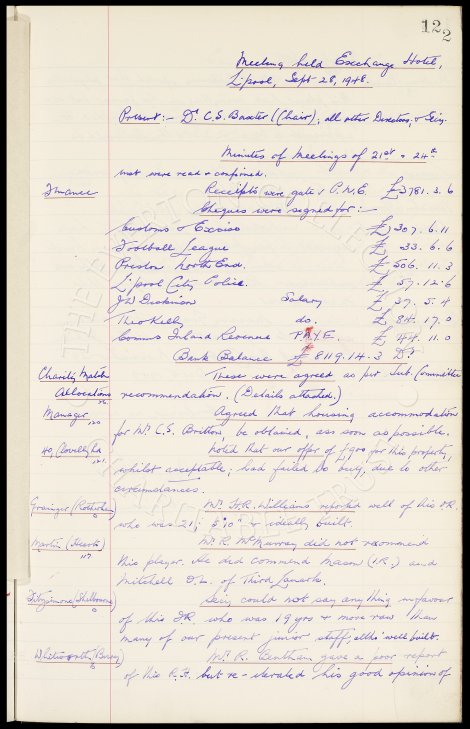 122
Meeting held Exchange Hotel,
L'pool, Sept 28, 1948.
Present:- Dr C.S. Baxter (Chair); all other Directors, & Secy.
Minutes of Meetings of 21st & 24th
inst were read & confirmed.
Finance Receipts were gate v P.N.E. £3781.3.6
Cheques were signed for:-
Customs & Excise £1307.6.11
Football League £33.6.6
Preston North End. £506.11.3
L'pool City Police. £57.12.6
J W Dickinson Salary £37.5.4
Theo Kelly do. £84.17.0
Comms Inland Revenue PAYE. £411.11.0
Bank Balance £8119.14.3 Dr
Charity Match These were agreed as per Sub. Committee
Allocations recommendation. (Details attached.)
Manager Agreed that housing accommodation
120
for Mr C.S. Britton, be obtained, as soon as possible.
Clovelly Rd Noted that our offer of for this property,
121
whilst acceptable; had failed to buy, due to other
circumstances.
Grainger (Rotherham) Mr. H.R. Williams reported well of this OR.
who was 21; 5'10" & ideally built.
Martin (Hearts) Mr. R. McMurray did not recommend
117
this player. He did commend Mason (I.R.) and
Mitchell O.L. of Third Lanark.
Fitzsimons (Shelbourne) Secy. could not say anything in favour
of this IR. who was 19 yrs & more raw than
many of our present junior staff, altho' well built.
Whitworth (Bury) Mr. R. Bentham gave a poor report
of this R.H. but re-iterated his good opinion of